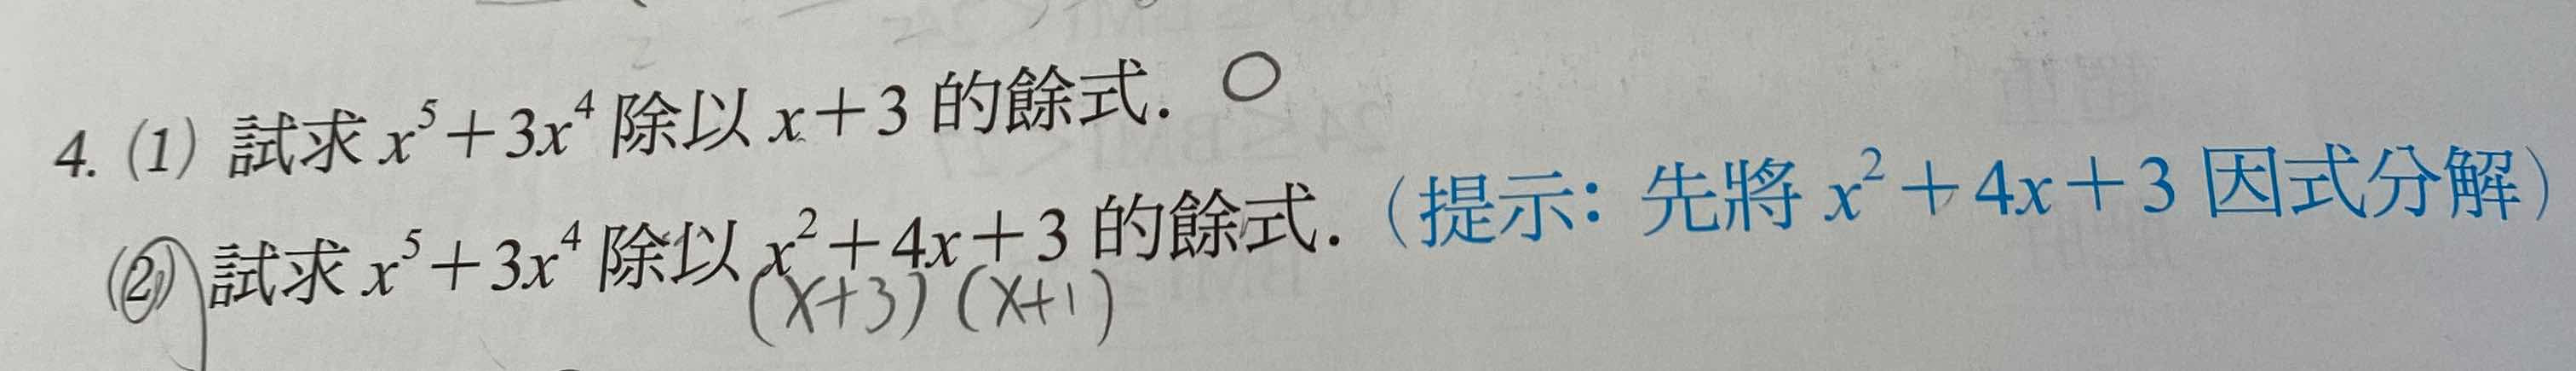 4. (1) 試求 x⁵+3x⁴ 除以 x+3 的餘式. 0
(2) 試求 x⁵+3x⁴ 除以 x²+4x+3 的餘式. (提示：先將 x²+4x+3 因式分解)
(x+3) (x+1)